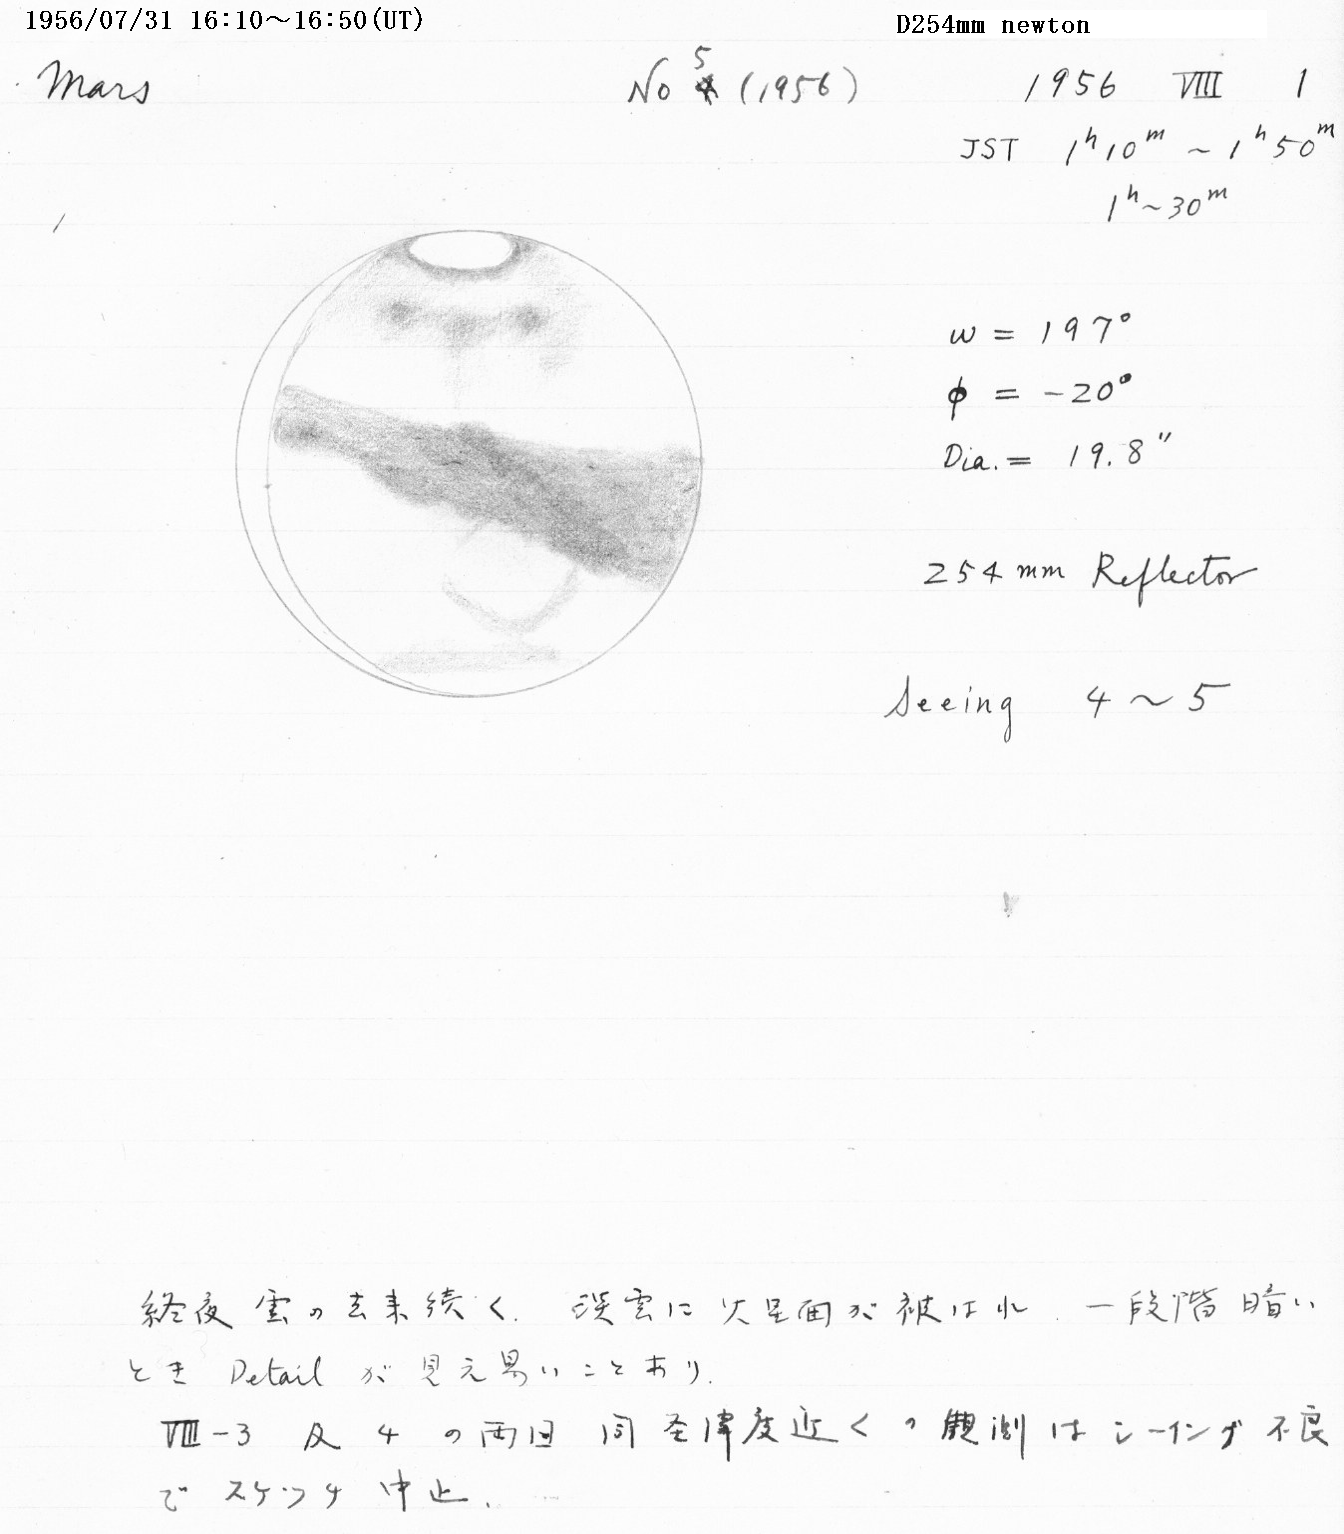 1956/07/31 16:10～16:50(UT)
D254mm newton
Mars
No 5 (1956)
1956 VIII 1
JST 1h10m ～ 1h50m
1h～30m
ω = 197°
φ = -20°
Dia. = 19.8"
254mm Reflector
Seeing 4 ～ 5
終夜 雲の去来続く. 淡雲に火星面が被はれ 一段階暗い
とき Detail が見え易いことあり.
VIII-3 及 4 の両回 同経緯度近くの観測はシーイング不良
でスケッチ中止.